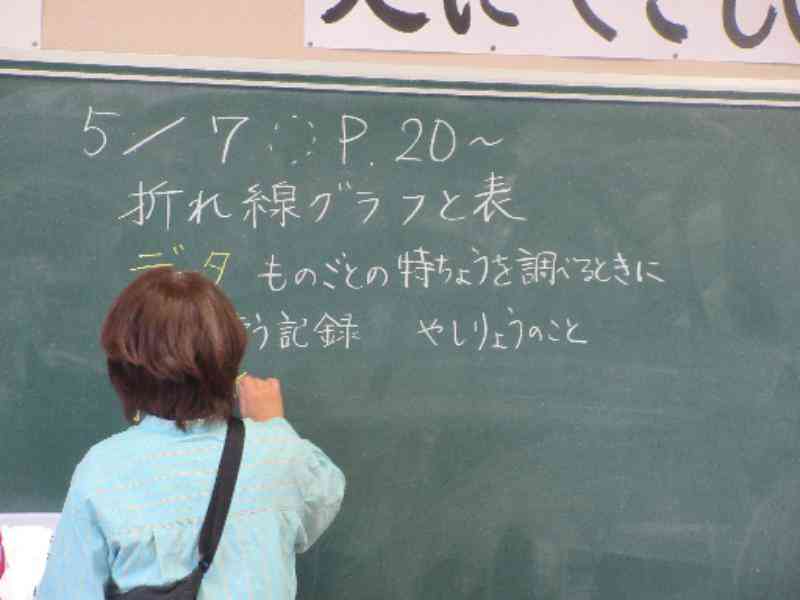 5/7 P.20～
折れ線グラフと表
データ ものごとの特ちょうを調べるときに
う記録 やしりょうのこと